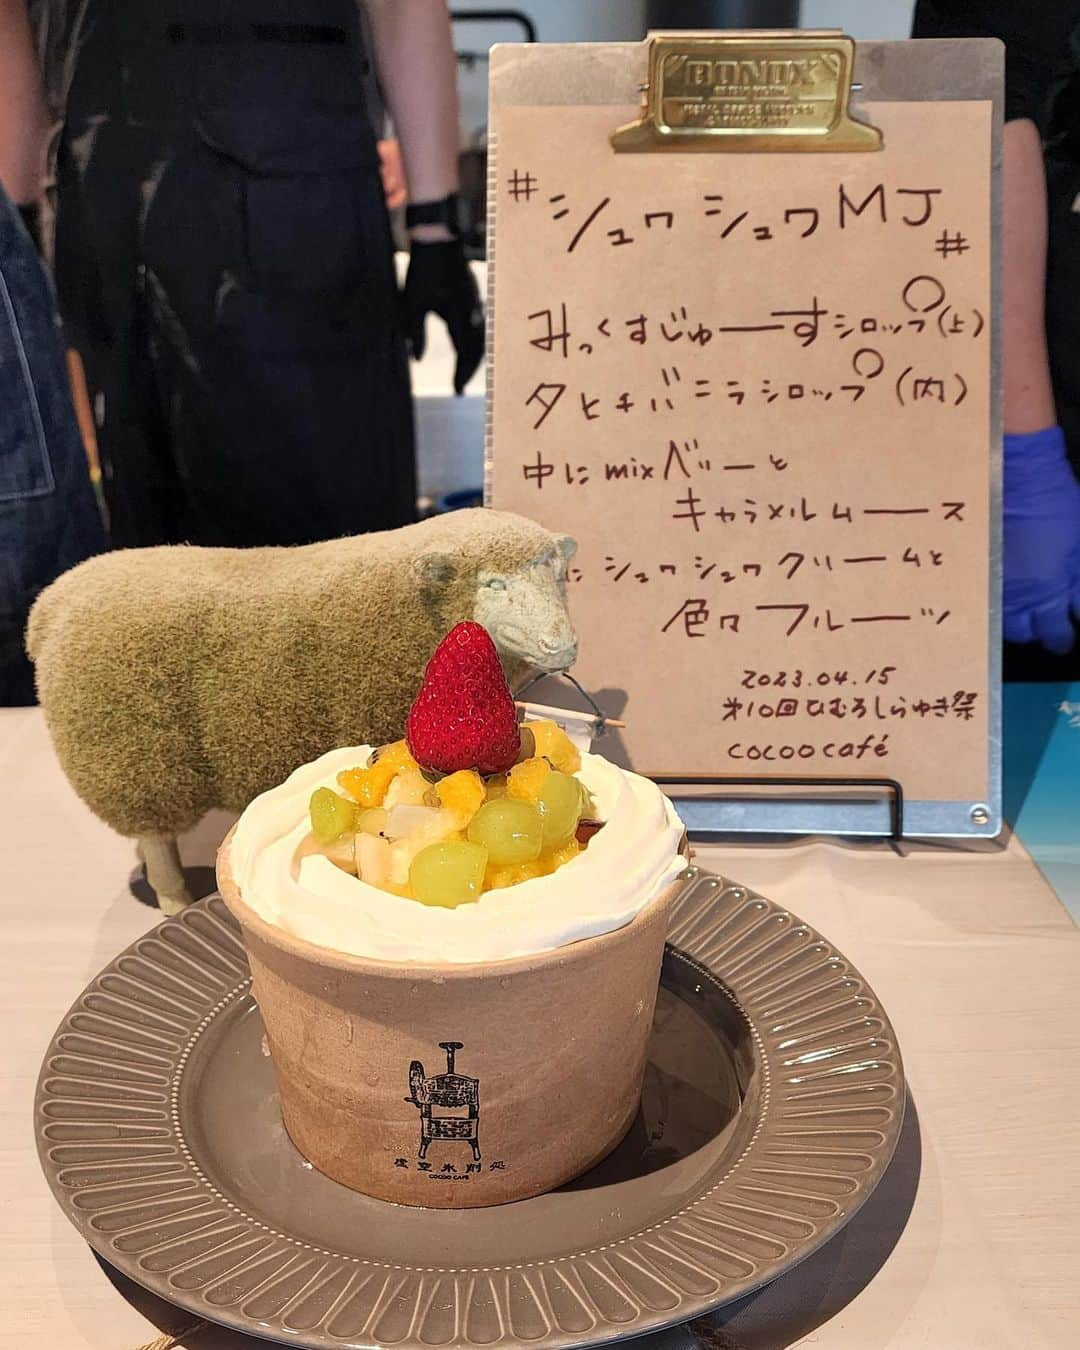 BONOX
#シュワシュワMJ#
みっくすじゅーーすシロップ(上)
タヒチバニラシロップ(内)
中にmixベリーと
キャラメルムース
に シュワシュワクリームと
色々フルーツ
2023.04.15
第10回ひむろしらゆき祭
cocoo café
虚空氷削処
COCOO CAFE